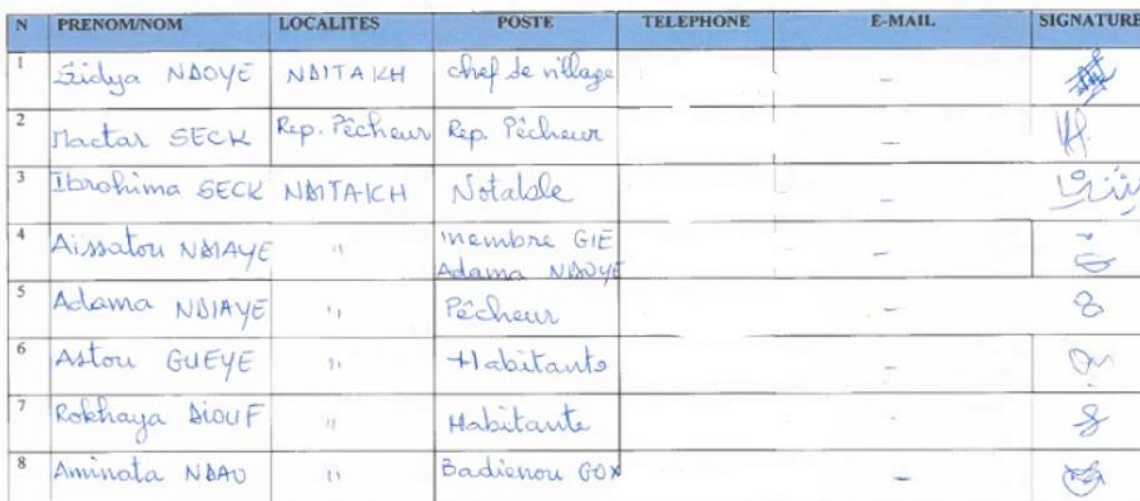 N PRENOM/NOM LOCALITES POSTE TELEPHONE E-MAIL SIGNATURE
1 Sidya NDOYE NDITAKH chef de village -
2 Mactar SECK Rep. Pêcheur Rep. Pêcheur -
3 Ibrohima SECK NDITAKH Notable -
4 Aïssatou NDIAYE " membre GIE -
Adama NDOYE
5 Adama NDIAYE " Pêcheur -
6 Astou GUEYE " Habitante -
7 Rokhaya DIOUF " Habitante -
8 Aminata NDAO " Badienou GOX -